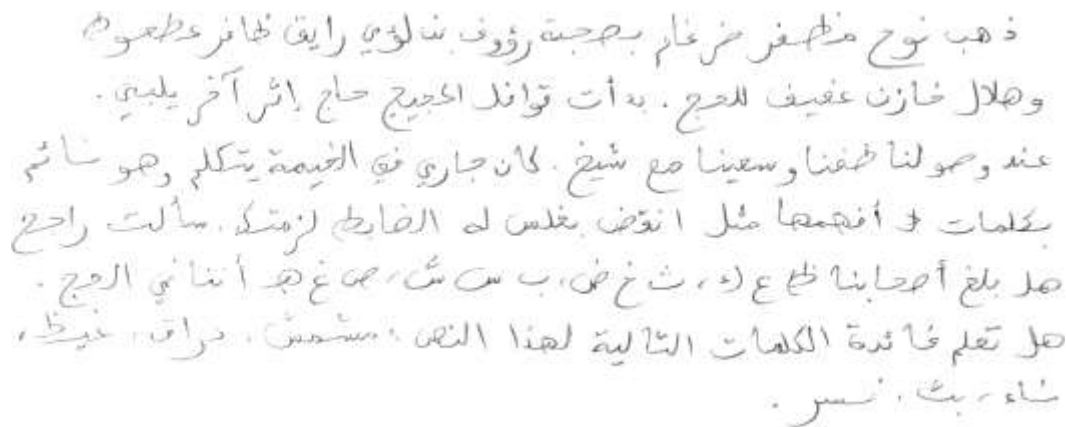 ذهب نوح مظفر ضرغام بصحبة رؤوف بن لؤي رايق ظافر عطعوط
وهلال خازن عفيف للحج . بدأت قوافل الحجيج حاج إثر آخر يلبي .
عند وصولنا طفنا وسعينا مع شيخ . كان جاري في الخيمة يتكلم وهو نائم
بكلمات لا أفهمها مثل انوض بغلس له الضابط لزمتك . سألت راجح
هل بلغ أصحابنا ظ ع ك ، ث غ ض ، ب س ش ، ص غ هـ أننا في الحج .
هل تعلم فائدة الكلمات التالية لهذا النص : مشمش ، دراق ، غيظ ،
شاء ، بث ، نسر .